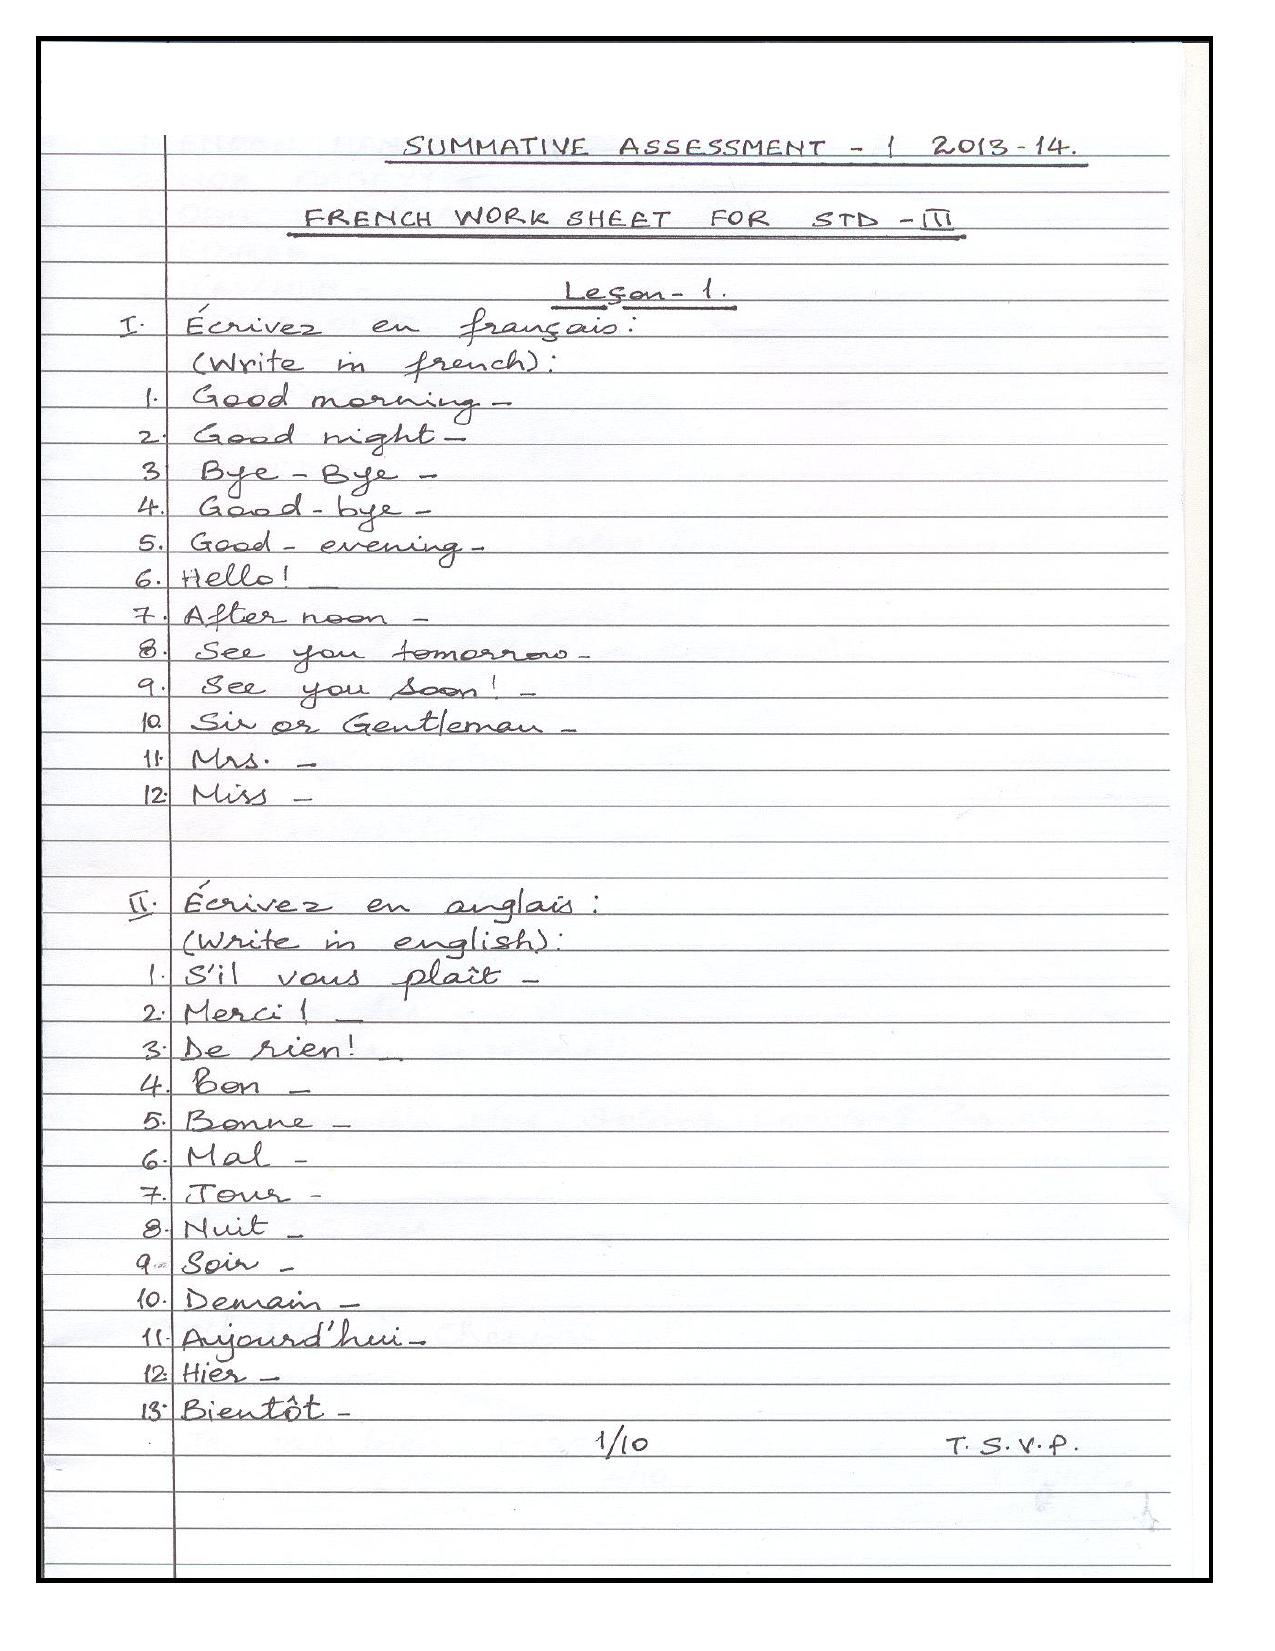 SUMMATIVE ASSESSMENT - 1 2013-14.
FRENCH WORK SHEET FOR STD - III
Leçon- 1.
I. Écrivez en français:
(Write in french):
1. Good morning -
2. Good night -
3 Bye - Bye -
4. Good - bye -
5. Good - evening -
6. Hello! _
7. After noon -
8. See you tomorrow -
9. See you soon! -
10. Sir or Gentleman -
11. Mrs. -
12. Miss -
II. Écrivez en anglais:
(Write in english):
1. S'il vous plaît -
2. Merci! _
3. De rien! _
4. Bon -
5. Bonne -
6. Mal -
7. Jour -
8. Nuit -
9. Soir -
10. Demain -
11. Aujourd'hui -
12. Hier -
13. Bientôt -
1/10 T. S. V. P.